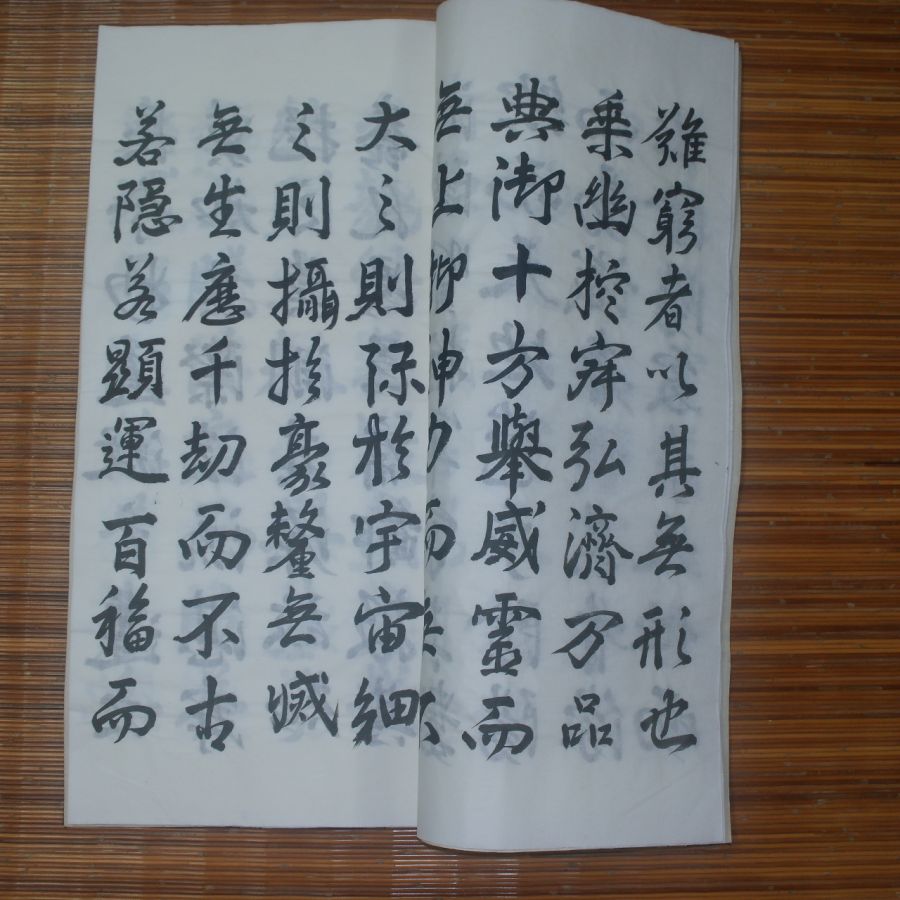 難窮者以其無形也
乘幽控寂弘濟万品
典御十方舉威靈而
無上抑神力而無下
大之則弥於宇宙細
之則攝於豪釐無滅
無生歷千劫而不古
若隱若顯運百福而